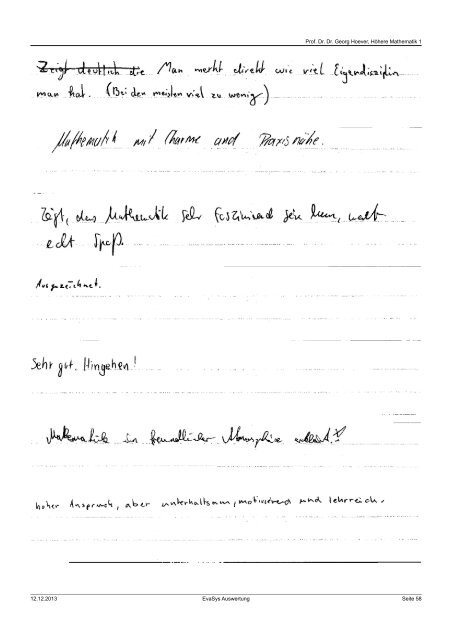 Prof. Dr. Dr. Georg Hoever, Höhere Mathematik 1
Zeigt deutlich die Man merkt direkt wie viel Eigendisziplin
man hat. (Bei den meisten viel zu wenig)
Mathematik mit Charme und Praxisnähe.
Zeigt, dass Mathematik sehr faszinierend sein kann, macht
echt Spaß.
Ausgezeichnet.
Sehr gut. Hingehen!
Mathematik in freundlicher Atmosphäre erklärt!
hoher Anspruch, aber unterhaltsam, motivierend und lehrreich.
12.12.2013
EvaSys Auswertung
Seite 58